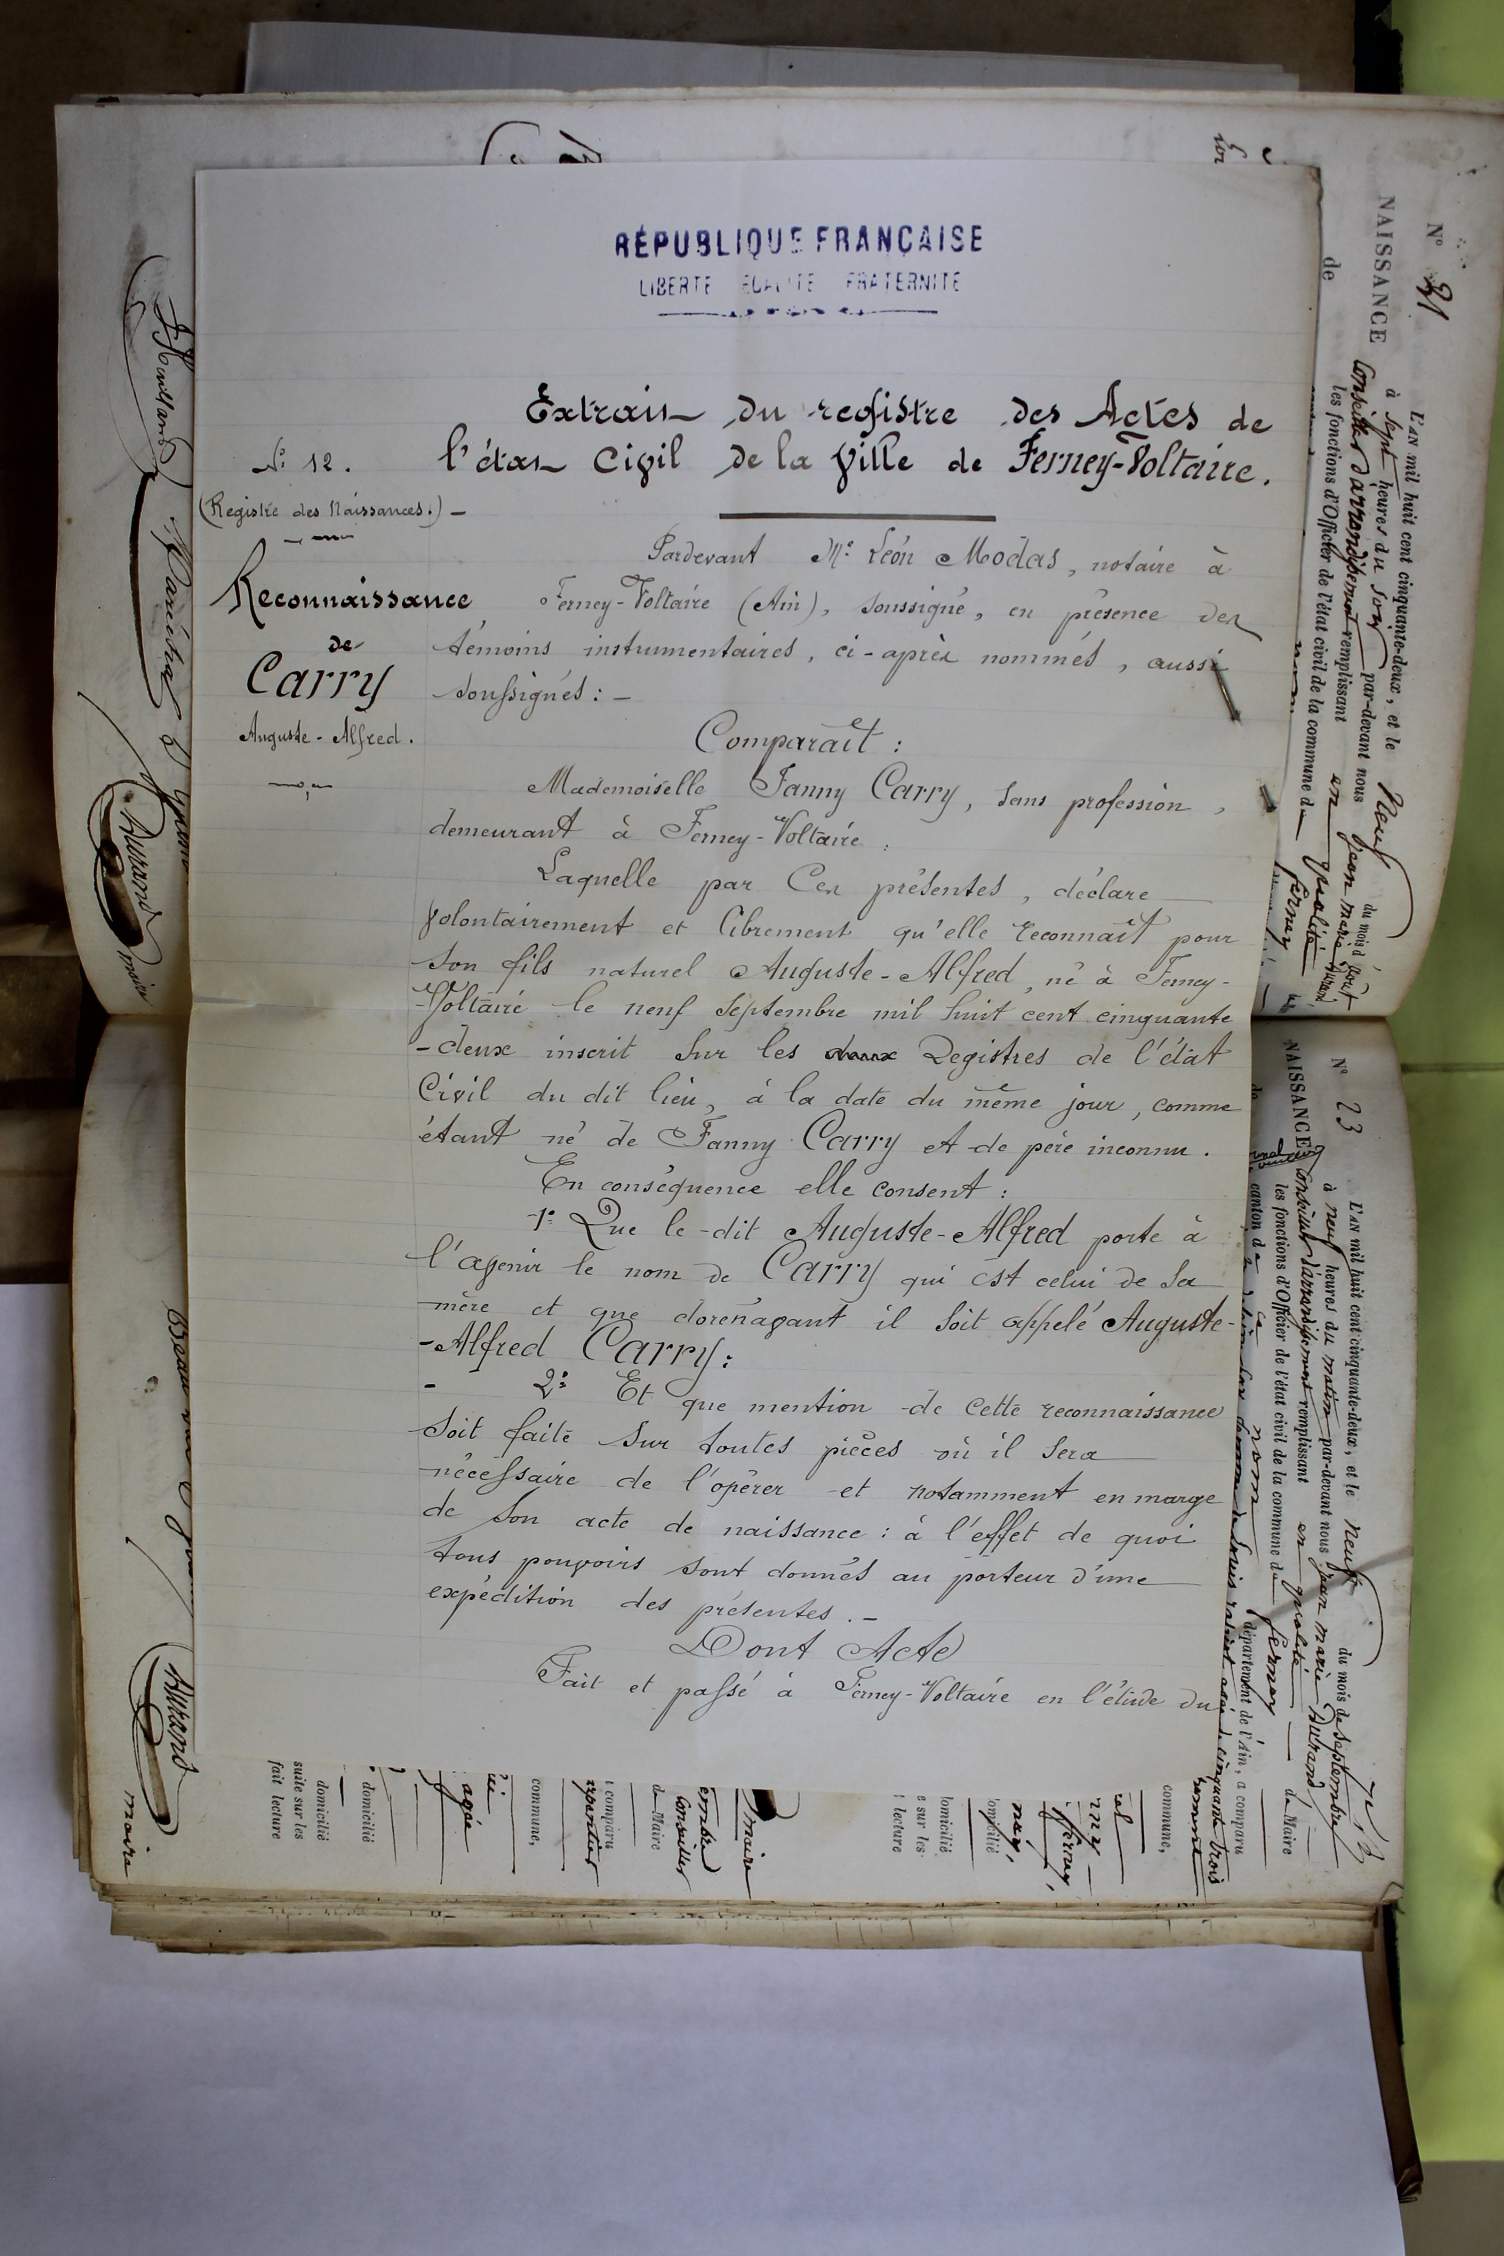 RÉPUBLIQUE FRANÇAISE
LIBERTÉ ÉGALITÉ FRATERNITÉ
Extrait du registre des Actes de
l'état Civil de la Ville de Ferney-Voltaire.
N° 12.
(Registre des Naissances.) —
Reconnaissance
de
Carry
Auguste-Alfred.
Pardevant Me Léon Modas, notaire à
Ferney-Voltaire (Ain), soussigné, en présence des
témoins instrumentaires, ci-après nommés, aussi
soussignés : —
Comparait :
Mademoiselle Fanny Carry, sans profession,
demeurant à Ferney-Voltaire.
Laquelle par Ces présentes, déclare
volontairement et librement qu'elle reconnait pour
son fils naturel Auguste-Alfred, né à Ferney-
-Voltaire le neuf Septembre mil huit cent cinquante
-deux inscrit sur les Registres de l'état
Civil du dit lieu, à la date du même jour, comme
étant né de Fanny Carry et de père inconnu.
En conséquence elle consent :
1° Que le-dit Auguste-Alfred porte à
l'avenir le nom de Carry qui est celui de sa
mère et que dorénavant il soit appelé Auguste-
-Alfred Carry :
- 2° Et que mention de Cette reconnaissance
soit faite sur toutes pièces où il sera
nécessaire de l'opérer et notamment en marge
de son acte de naissance : à l'effet de quoi
tous pouvoirs sont donnés au porteur d'une
expédition des présentes. —
Dont Acte
Fait et passé à Ferney-Voltaire en l'étude du
N° 21
NAISSANCE
de
L'AN mil huit cent cinquante-deux, et le neuf du mois d'août
à sept heures du soir par-devant nous jean marie Durand,
Conseiller d'arrondissement remplissant en qualité
les fonctions d'Officier de l'état civil de la commune de ferney
N° 23
NAISSANCE
de
L'AN mil huit cent cinquante-deux, et le neuf du mois de Septembre
à neuf heures du matin par-devant nous jean marie Durand,
Conseiller d'arrondissement remplissant en qualité de Maire
les fonctions d'Officier de l'état civil de la commune de ferney
canton de département de l'Ain, a comparu
cinquante trois
commune,
domicilié
e sur les
lecture
maire
Conseiller
de Maire
comparu
commune,
agée
domicilié
domicilié
suite sur les
fait lecture
Durand
maire
Durand
maire